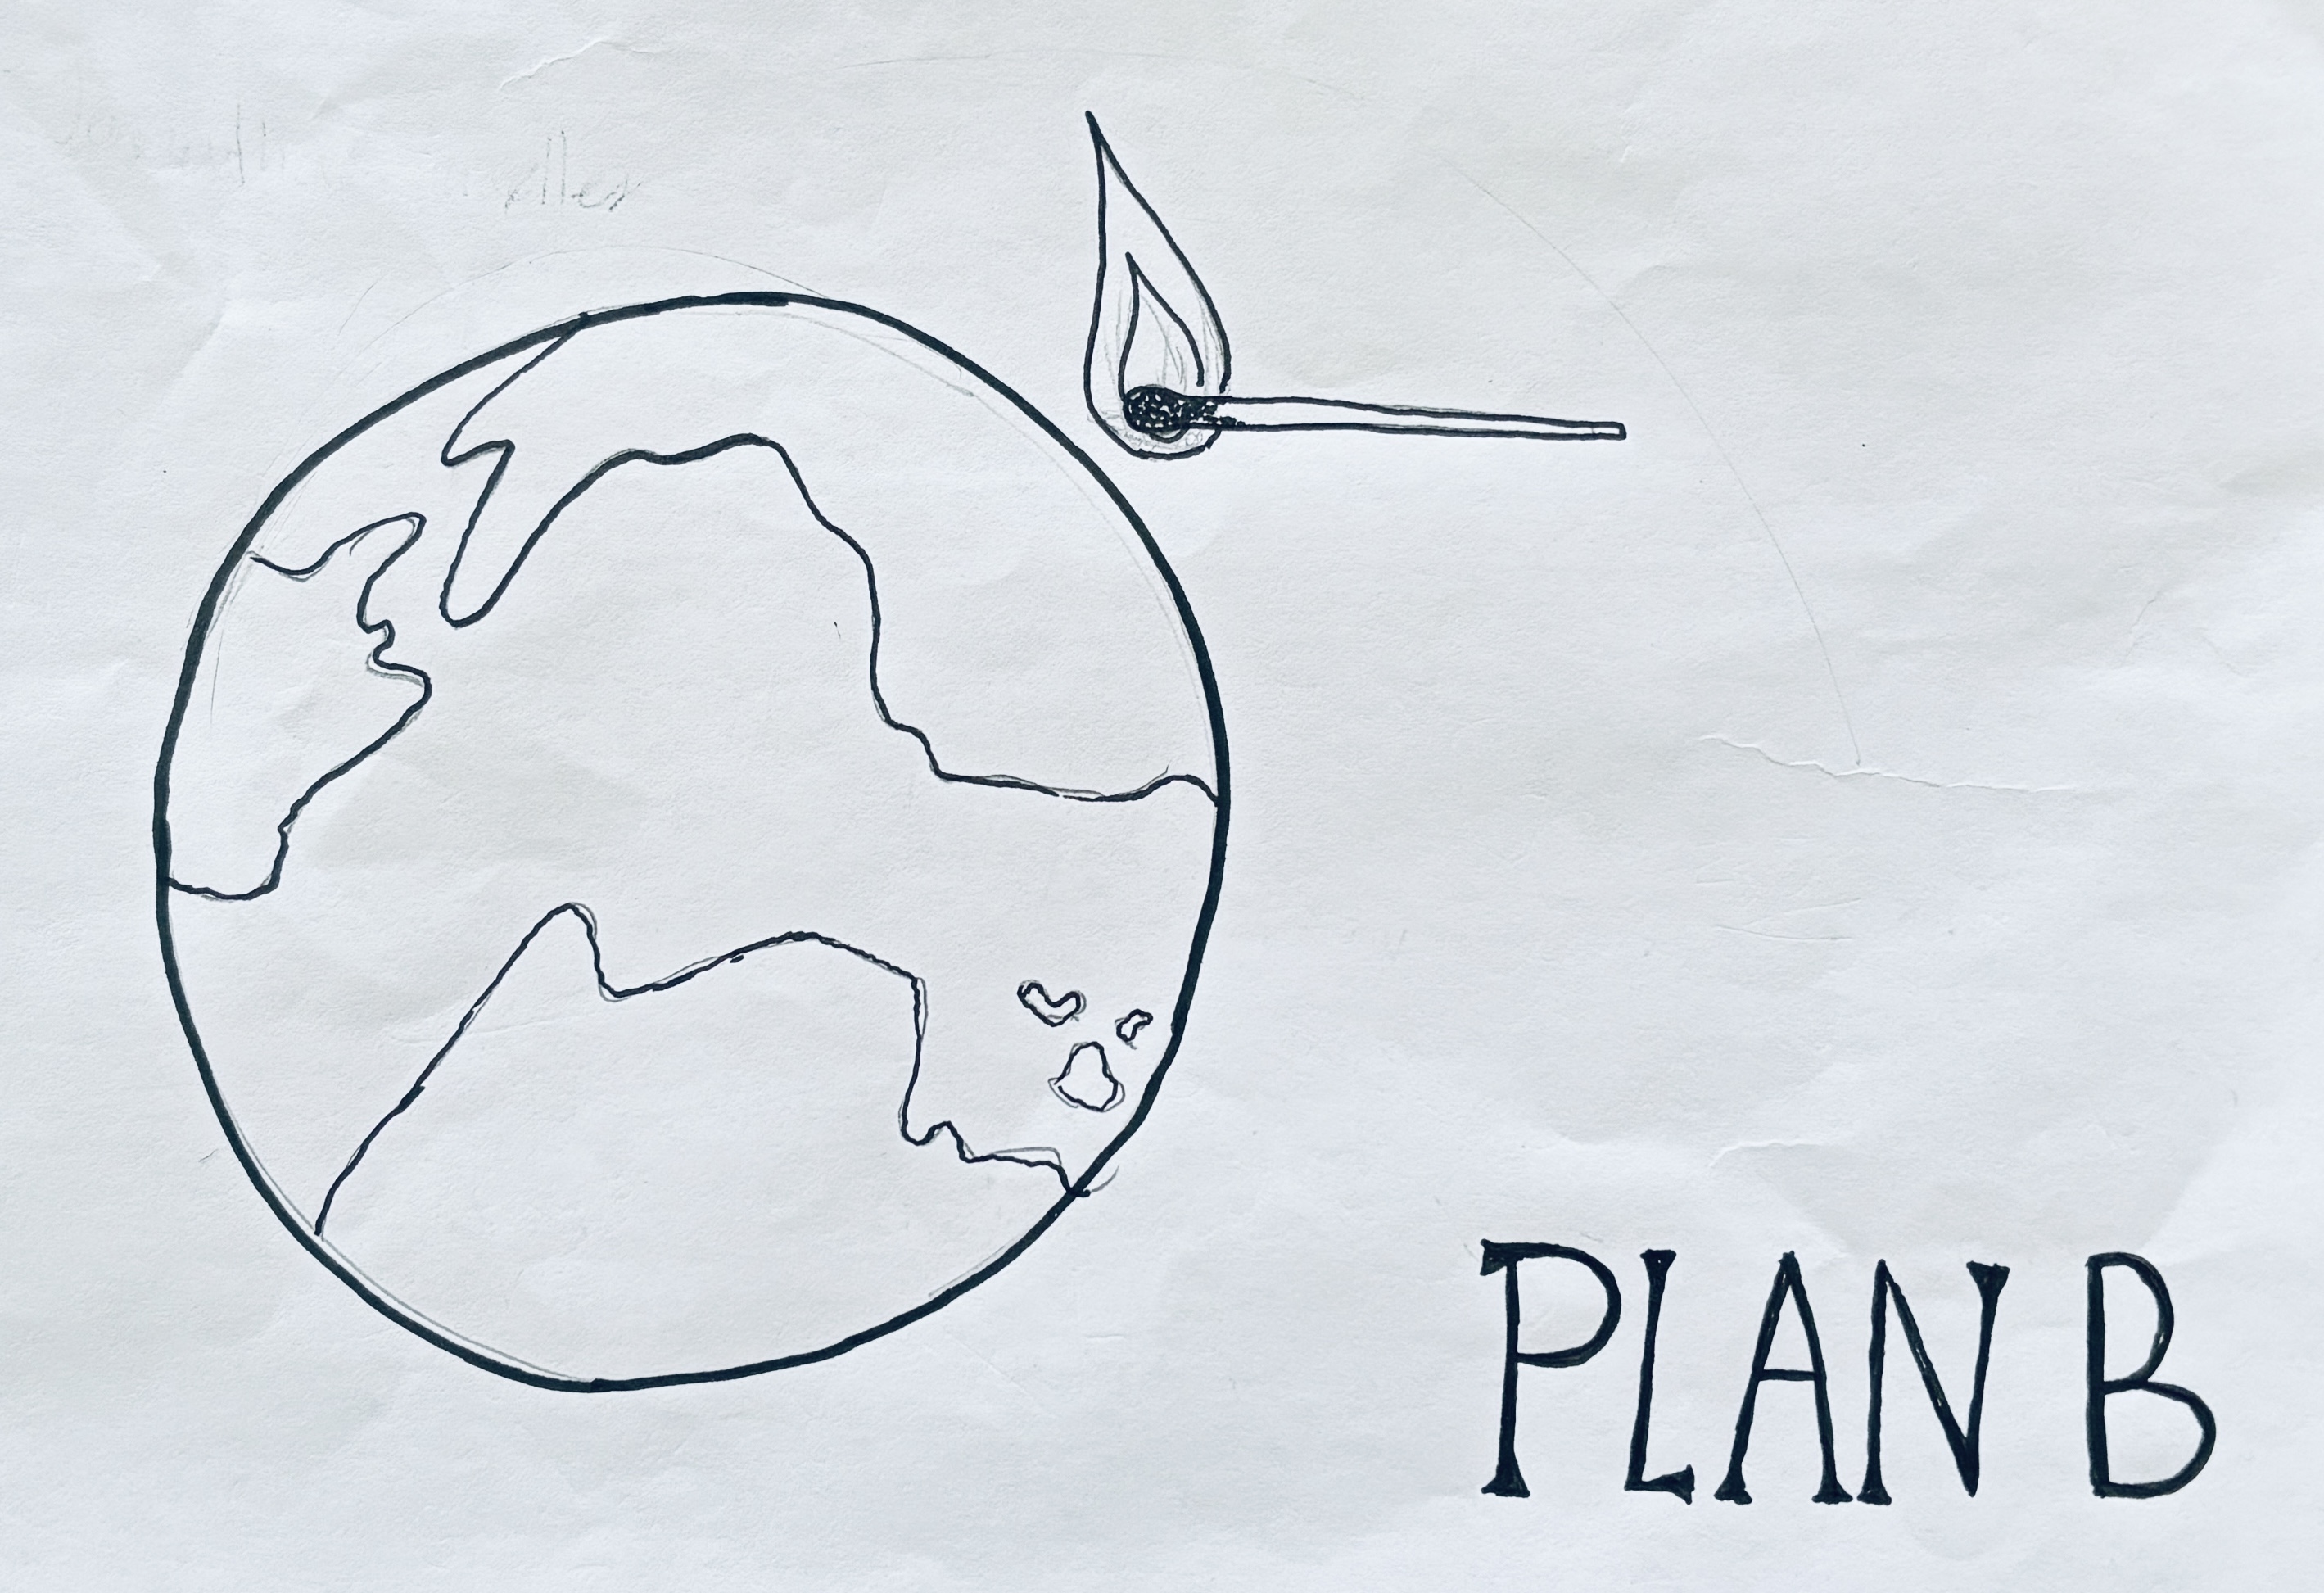 PLAN B